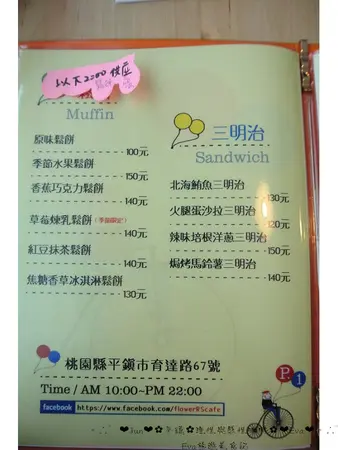 以下2200供應
Muffin
原味鬆餅
100元
季節水果鬆餅
150元
香蕉巧克力鬆餅
140元
草莓煉乳鬆餅(季節限定)
140元
紅豆抹茶鬆餅
140元
焦糖香草冰淇淋鬆餅
130元
三明治
Sandwich
北海鮪魚三明治
130元
火腿蛋沙拉三明治
120元
辣味培根洋蔥三明治
150元
焗烤馬鈴薯三明治
140元
桃園縣平鎮市育達路67號
Time / AM 10:00~PM 22:00
facebook https://www.facebook.com/flower95cafe
P.1